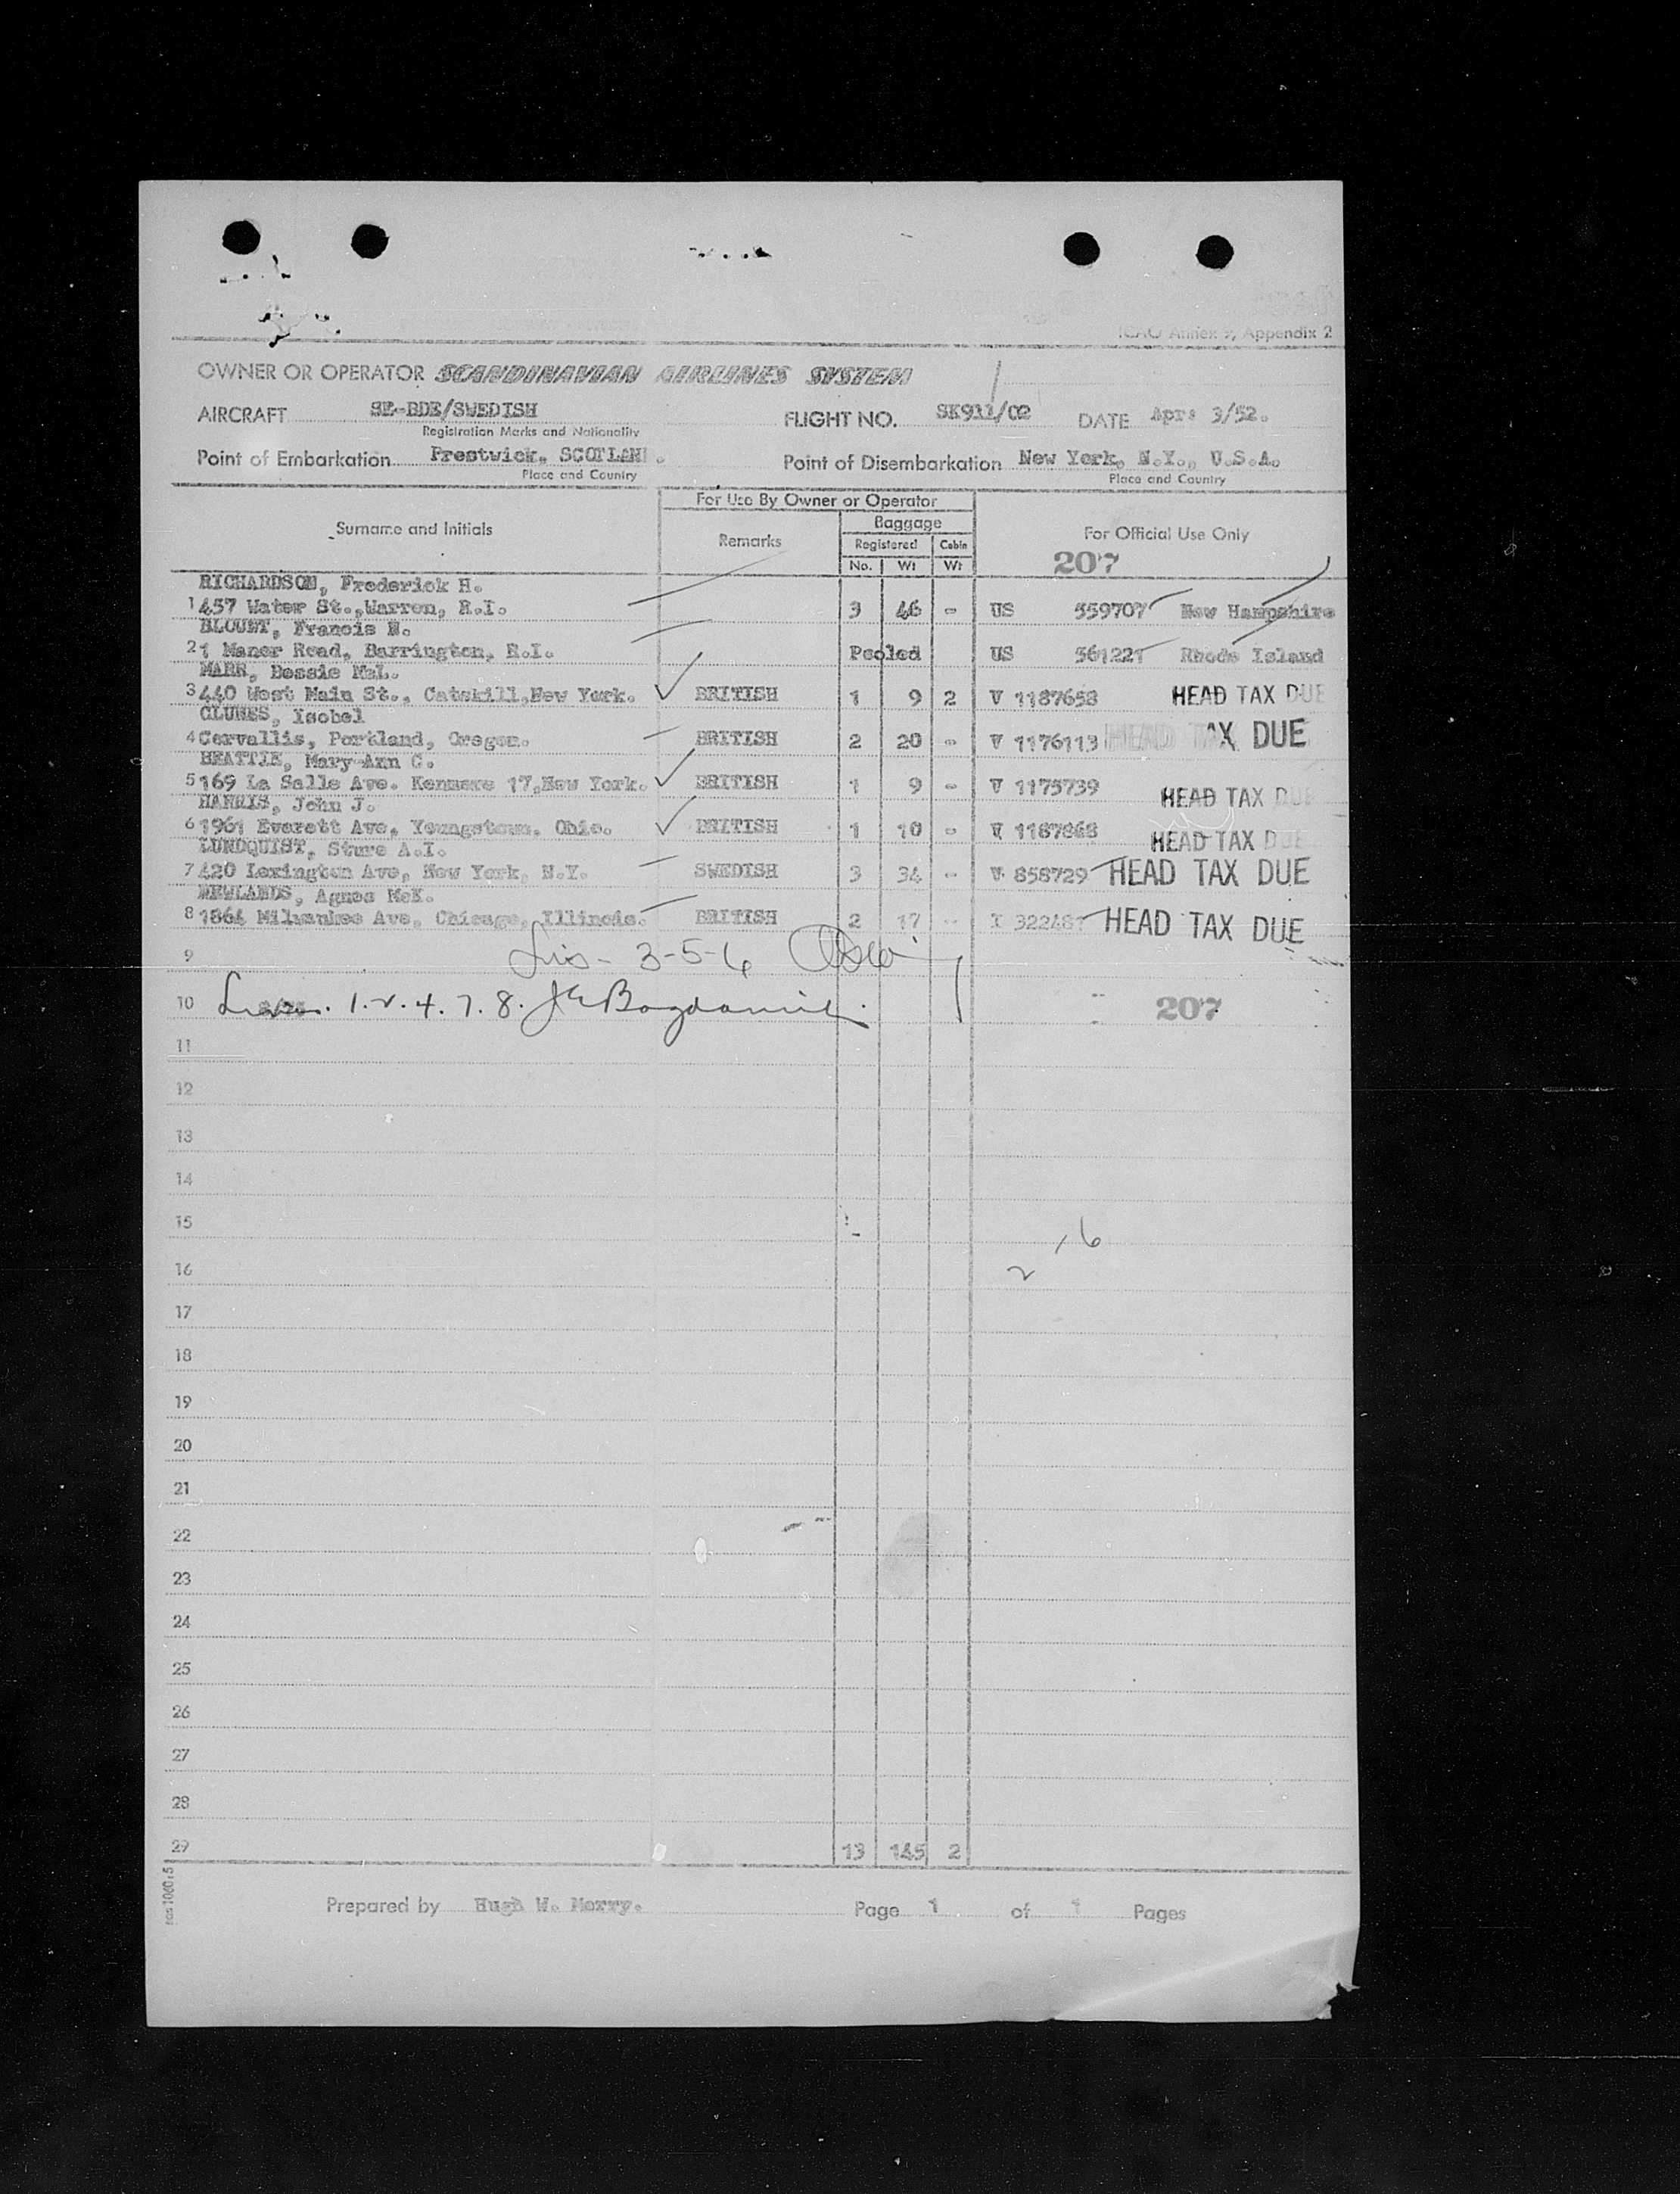 ICAO Annex 9, Appendix 2
OWNER OR OPERATOR SCANDINAVIAN AIRLINES SYSTEM
AIRCRAFT SE-BDE/SWEDISH FLIGHT NO. SK911/02 DATE Apr: 3/52.
Registration Marks and Nationality
Point of Embarkation Prestwick, SCOTLAN . Point of Disembarkation New York, N.Y., U.S.A.
Place and Country Place and Country
For Use By Owner or Operator
Surname and Initials Remarks Baggage For Official Use Only
Registered Cabin
No. Wt Wt 207
RICHARDSON, Frederick H.
1 457 Water St.,Warren, R.I. 3 46 - US 559707 New Hampshire
BLOUNT, Francis N.
2 1 Manor Road, Barrington, R.I. Pooled US 561221 Rhode Island
MARR, Bessie McL.
3 440 West Main St., Catskill,New York. BRITISH 1 9 2 V 1187658 HEAD TAX DUE
CLUNES, Isobel
4 Corvallis, Portland, Oregon. BRITISH 2 20 - V 1176113 HEAD TAX DUE
BEATTIE, Mary Ann C.
5 169 La Salle Ave. Kenmore 17,New York. BRITISH 1 9 - V 1175739 HEAD TAX DUE
HARRIS, John J.
6 1961 Everett Ave, Youngstown, Ohio. BRITISH 1 10 - V 1187868 HEAD TAX DUE
LUNDQUIST, Sture A.I.
7 420 Lexington Ave, New York, N.Y. SWEDISH 3 34 - V 858729 HEAD TAX DUE
NEWLANDS, Agnes McK.
8 1864 Milwaukee Ave, Chicago, Illinois. BRITISH 2 17 - I 322481 HEAD TAX DUE
9 3-5-6
10 1.2.4.7.8. 207
11
12
13
14
15 , 6
16 2
17
18
19
20
21
22
23
24
25
26
27
28
29 13 145 2
Prepared by Hugh W. Morry. Page 1 of 1 Pages